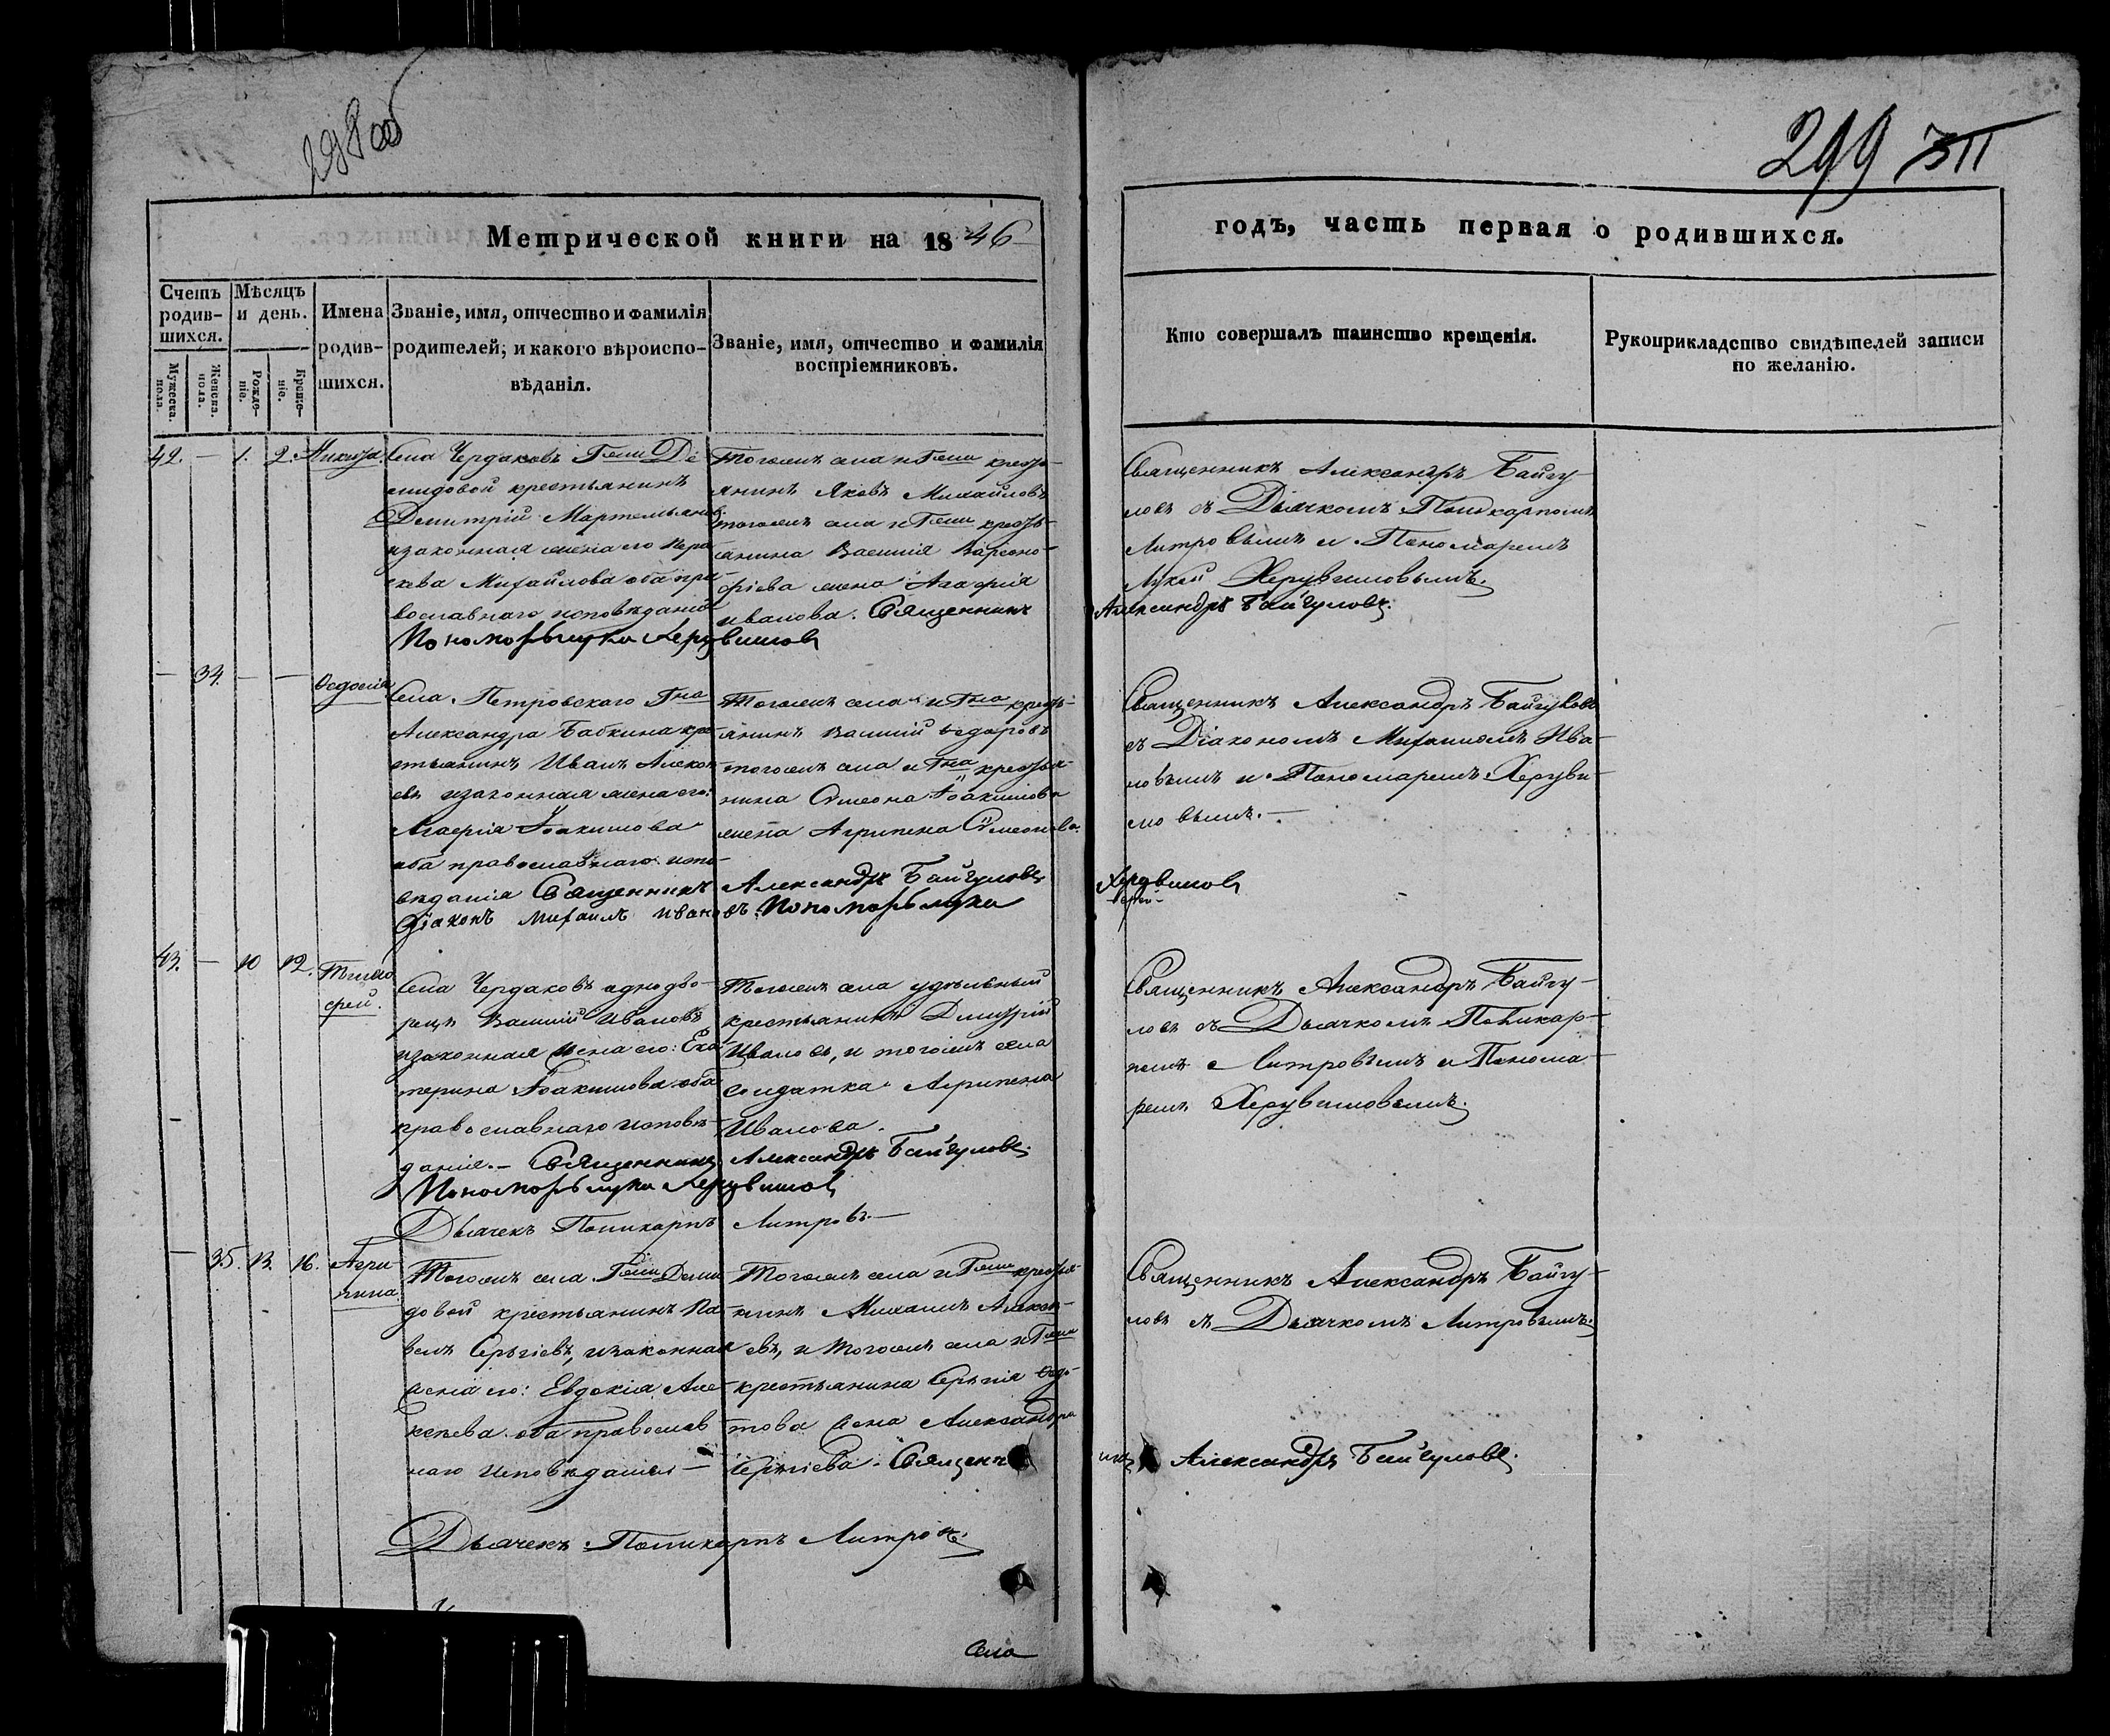 298 об
299 311
Метрической книги на 1846
годъ, часть первая о родившихся.
Счетъ родив-шихся.
Мужеска. пола.
Женска. пола.
Мѣсяцъ и день.
Рожде-ніе.
Креще-ніе.
Имена родив-шихся.
Званіе, имя, отчество и фамилія
родителей, и какого вѣроиспо-
вѣданія.
Званіе, имя, отчество и фамилія
воспріемниковъ.
Кто совершалъ таинство крещенія.
Рукоприкладство свидѣтелей записи
по желанію.
42. — 1. 2. Никита.
Села Чердаковъ Гжи Де
мидовой крестьянинъ
Димитрій Мартемьяновъ
и законная жена его Пара
скева Михайлова оба пра
вославнаго исповѣданія
Тогожъ села и Гжи кресть-
янинъ Яковъ Михайловъ
тогожъ села и Гжи кресть-
янина Василія Варсоно-
фіева жена Агафія
Иванова. Священникъ
Александръ Байгуловъ.
Пономарь Лука Херувимовъ
Священникъ Александръ Байгу-
ловъ съ Дьячкомъ Поликарпомъ
Литровымъ и Пономаремъ
Лукой Херувимовымъ.
— 34. — — Ѳедосія
Села Петровскаго Гна
Александра Бабкина кре
стьянинъ Иванъ Алексѣ
евъ и законная жена его:
Агафія Іоакимова
оба православнаго испо-
вѣданія Священникъ
Тогожъ села и Гна кресть-
янинъ Василій Ѳедоровъ
тогожъ села и Гна крестья-
нина Сѵмеона Іоакимова
жена Агрипена Сѵмеонова.
Александръ Байгуловъ
Діаконъ Михаилъ Ивановъ. Пономарь Лука
Херувимовъ
Священникъ Александръ Байгуловъ
съ Діакономъ Михаиломъ Ива-
новымъ и Пономаремъ Херуви-
мовымъ. —
43. — 10 12. Тимо
фей.
Села Чердаковъ однодво-
рецъ Василій Ивановъ
и законная жена его: Ека
терина Іоакимова оба
православнаго исповѣ-
данія. — Священникъ
Тогожъ села удѣльный
крестьянинъ Димитрій
Ивановъ, и тогожъ села
солдатка Агрипена
Иванова.
Александръ Байгуловъ.
Пономарь Лука Херувимовъ
Дьячекъ Поликарпъ Литровъ. —
Священникъ Александръ Байгу-
ловъ съ Дьячкомъ Поликар-
помъ Литровымъ и Понома-
ремъ Херувимовымъ.
— 35. 13. 16. Агри
пина.
Тогожъ села Гжи Деми
довой крестьянинъ Па-
велъ Сергіевъ, и законная
жена его: Евдокія Але-
ксѣева оба православ
наго исповѣданія —
Тогожъ села и Гжи крестья-
нинъ Михаилъ Алексѣ-
евъ, и тогожъ села и Гжи
крестьянина Сергія Ѳедо-
това жена Александра
Сергіева. Священн
икъ Александръ Байгуловъ.
Дьячекъ Поликарпъ Литровъ.
Священникъ Александръ Байгу-
ловъ съ Дьячкомъ Литровымъ.
Села